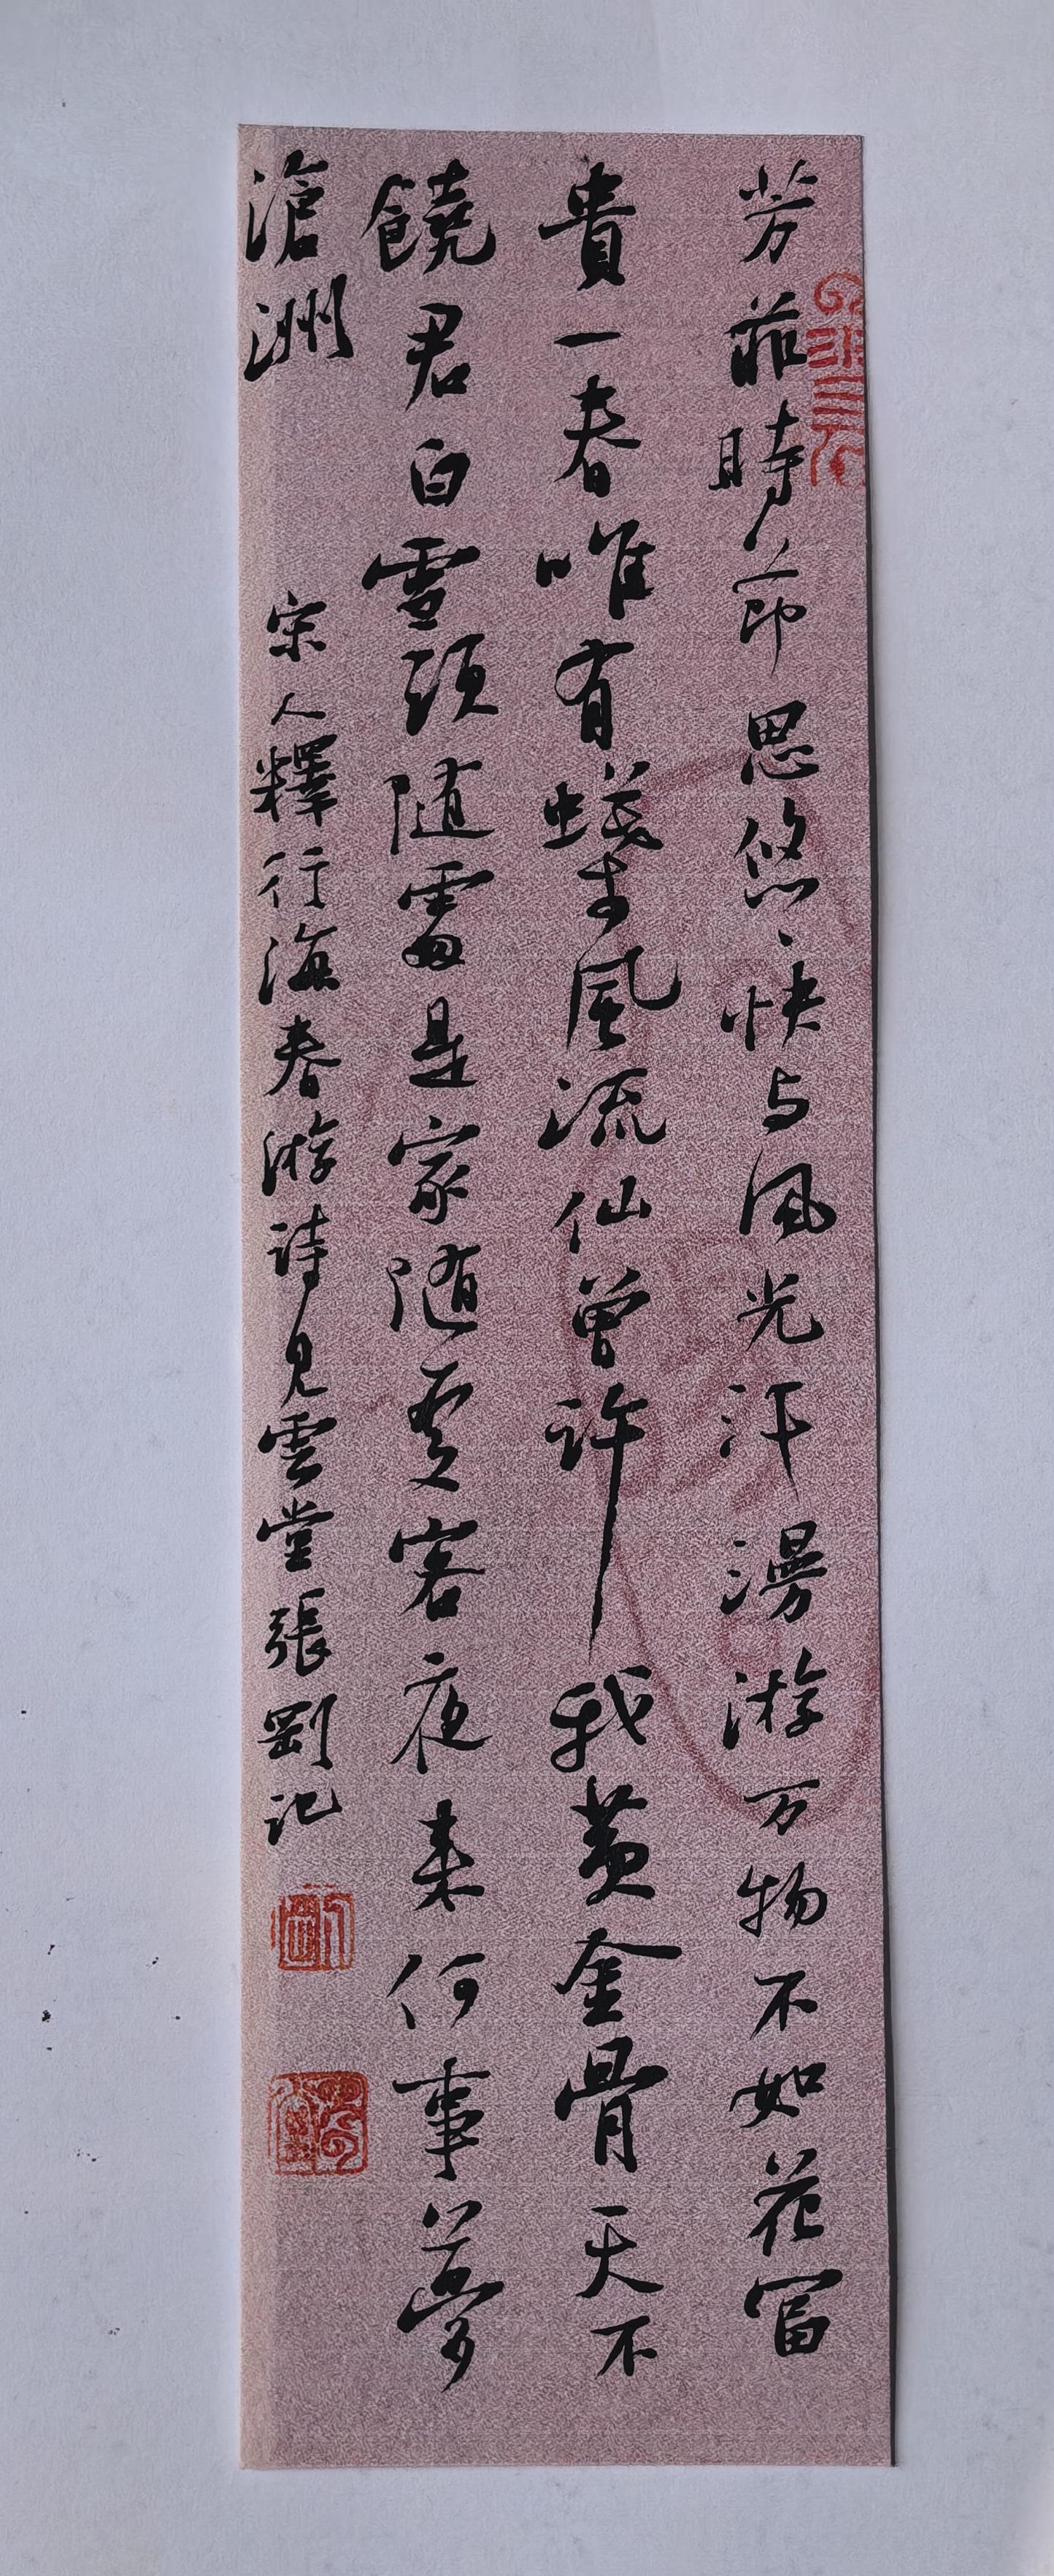 芳菲時節思悠々快与風光汗漫游万物不如花富
貴一春唯有蝶風流仙曾許我黃金骨天不
饒君白雪頭随處是家随處客夜来何事夢
滄洲 宋人釋行海春游詩見雲堂張剛記